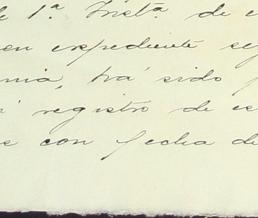 de 1ª. Instª. de c
en expediente se
nia, há sido
registro de es
s con fecha de